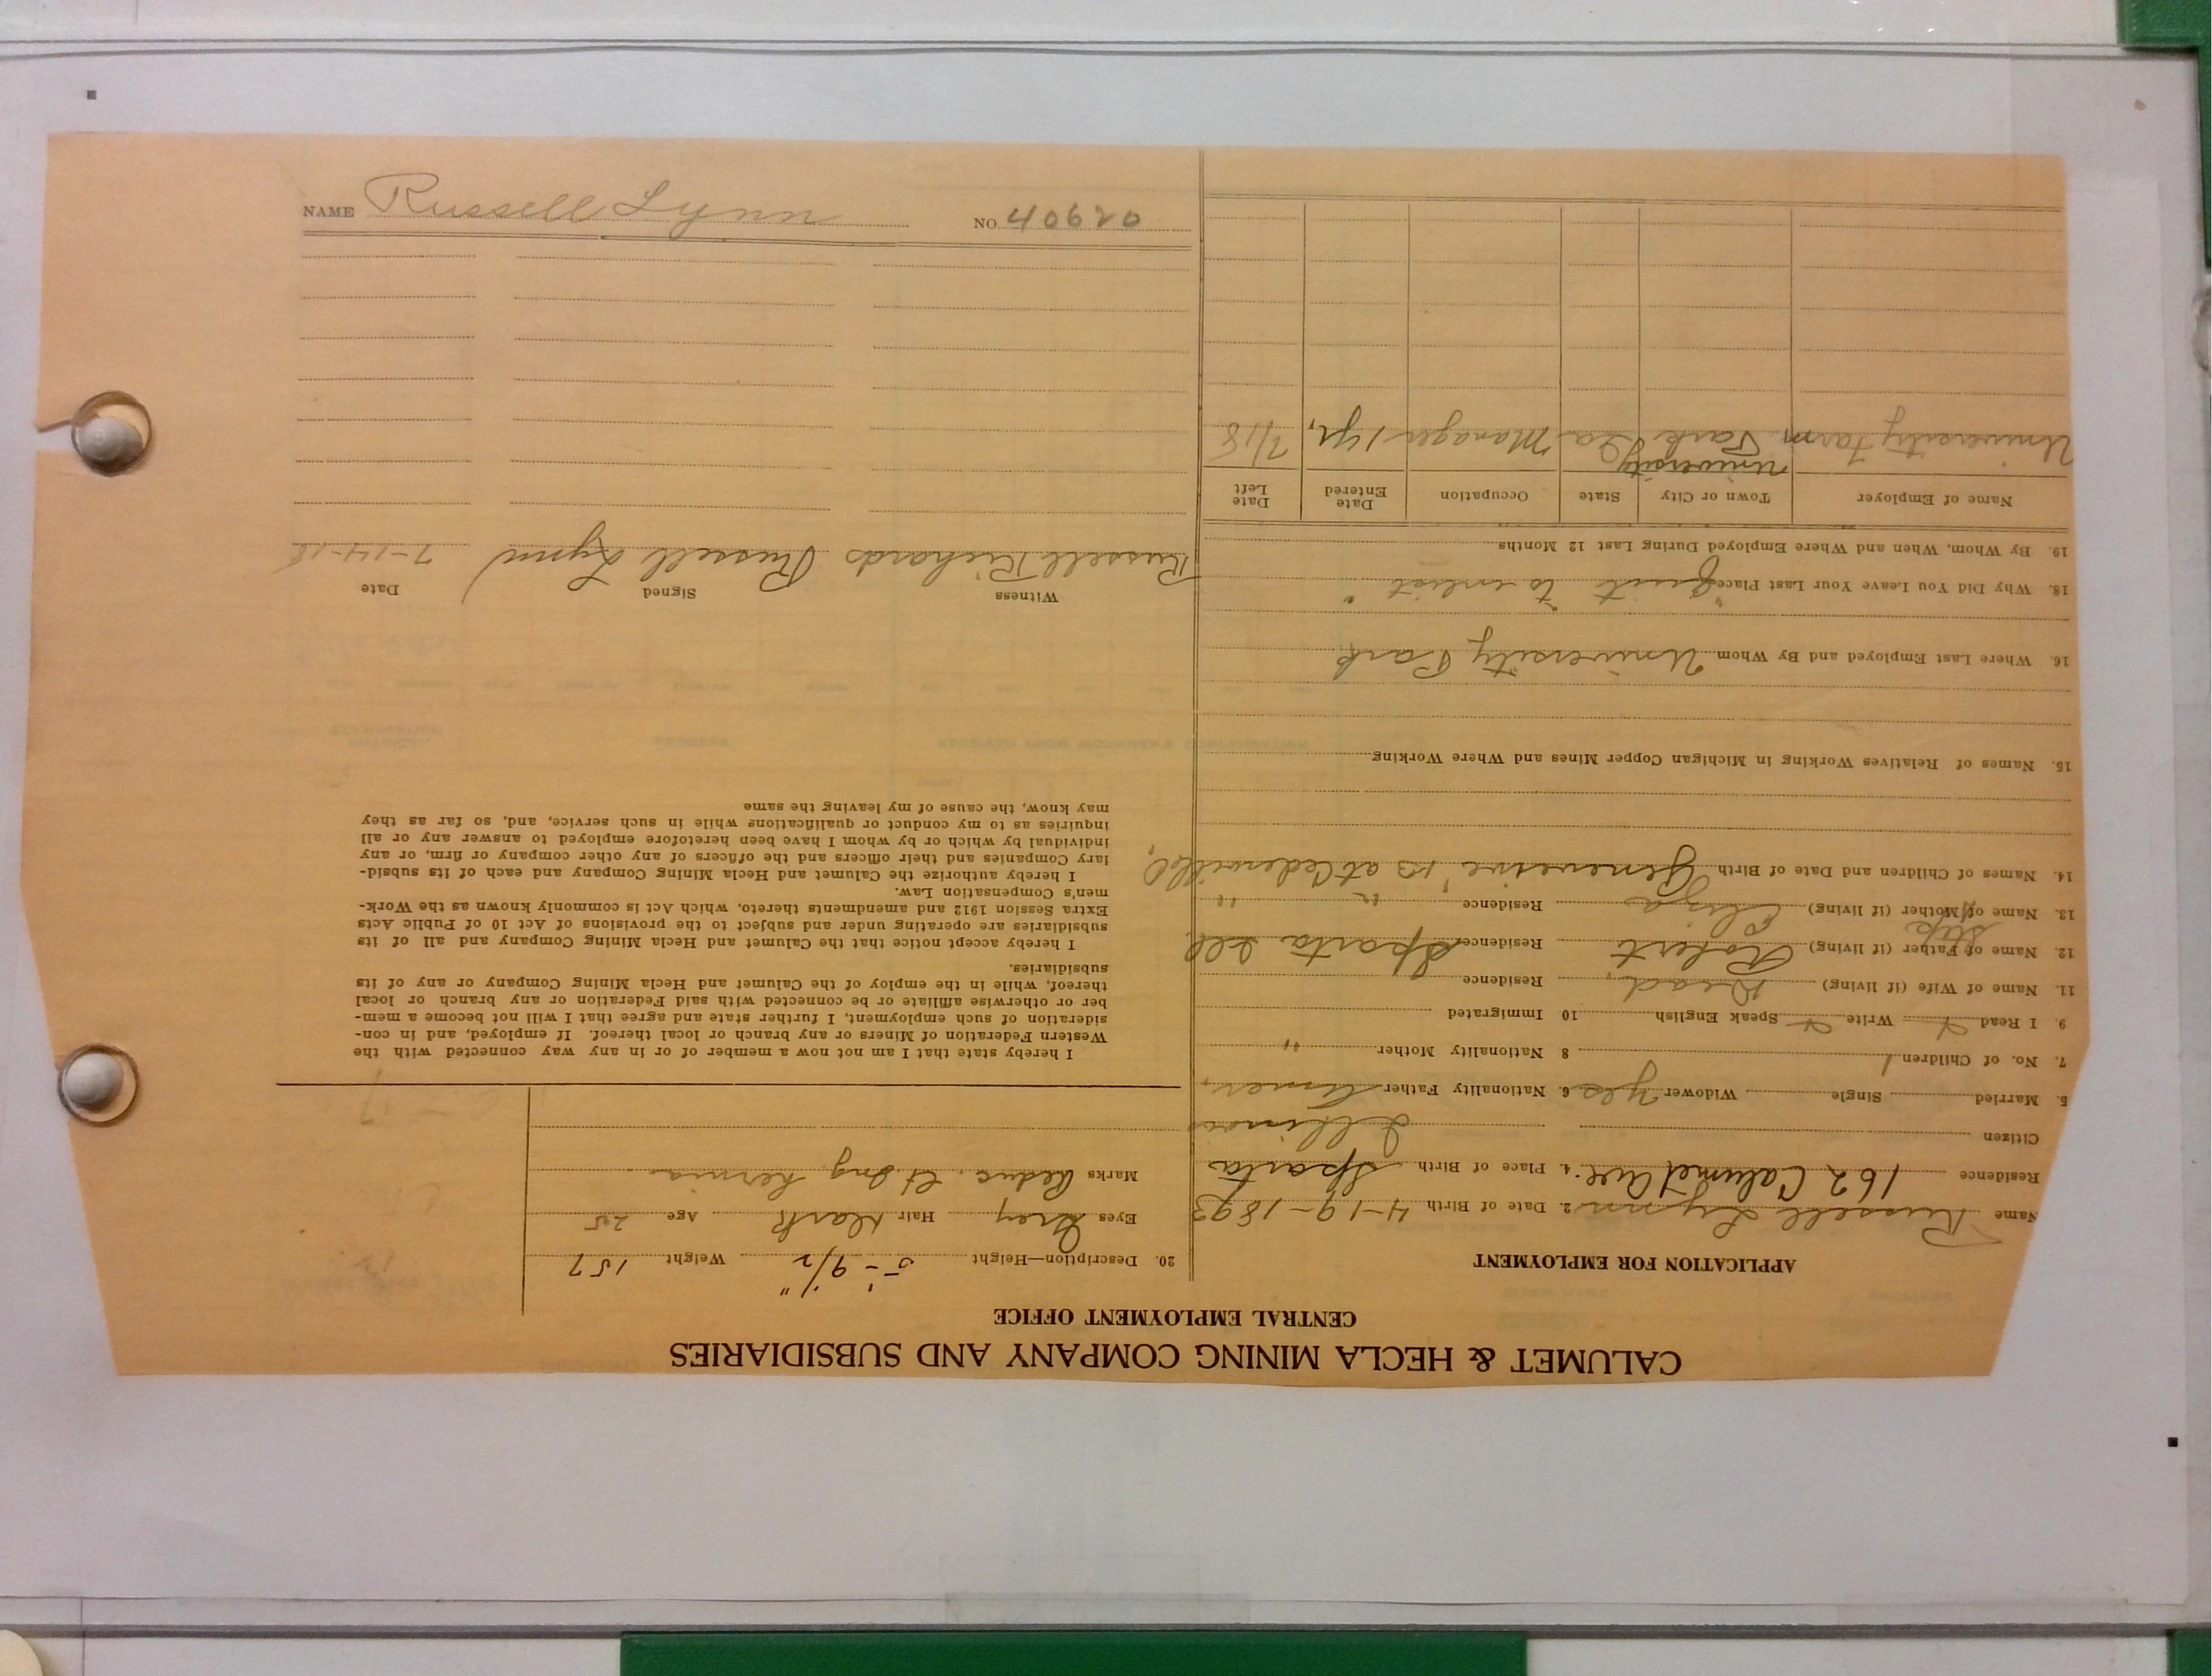 CALUMET & HECLA MINING COMPANY AND SUBSIDIARIES
CENTRAL EMPLOYMENT OFFICE
APPLICATION FOR EMPLOYMENT
Name Russell Lynn 2. Date of Birth 4-19-1893
Residence 162 Calumet Ave. 4. Place of Birth Sparta
Citizen Illinois
5. Married Single Widower yes 6. Nationality Father Amer.
7. No. of Children 1 8 Nationality Mother "
9. I Read Write Speak English 10 Immigrated
11. Name of Wife (if living) Dead, Residence
12. Name of Father (if living) Robert Residence Sparta Ill
Step
13. Name of Mother (if living) Eliza Residence " "
14. Names of Children and Date of Birth at
15. Names of Relatives Working in Michigan Copper Mines and Where Working
16. Where Last Employed and By Whom University Park
18. Why Did You Leave Your Last Place "quit to enlist"
19. By Whom, When and Where Employed During Last 12 Months
Name of Employer Town or City State Occupation Date Entered Date Left
University Farm University Park Ia Manager 1 yr, 7/18
20. Description—Height 5'-9 1/2" Weight 157
Eyes Grey Hair Dark Age 25
Marks Reduc. Lt. Ing. hernia
I hereby state that I am not now a member of or in any way connected with the
Western Federation of Miners or any branch or local thereof. If employed, and in con-
sideration of such employment, I further state and agree that I will not become a mem-
ber or otherwise affiliate or be connected with said Federation or any branch or local
thereof, while in the employ of the Calumet and Hecla Mining Company or any of its
subsidiaries.
I hereby accept notice that the Calumet and Hecla Mining Company and all of its
subsidiaries are operating under and subject to the provisions of Act 10 of Public Acts
Extra Session 1912 and amendments thereto, which Act is commonly known as the Work-
men's Compensation Law.
I hereby authorize the Calumet and Hecla Mining Company and each of its subsid-
iary Companies and their officers and the officers of any other company or firm, or any
individual by which or by whom I have been heretofore employed to answer any or all
inquiries as to my conduct or qualifications while in such service, and, so far as they
may know, the cause of my leaving the same
Witness Signed Date
Russell Richards Russell Lynn 7-14-18
NAME Russell Lynn NO. 40620